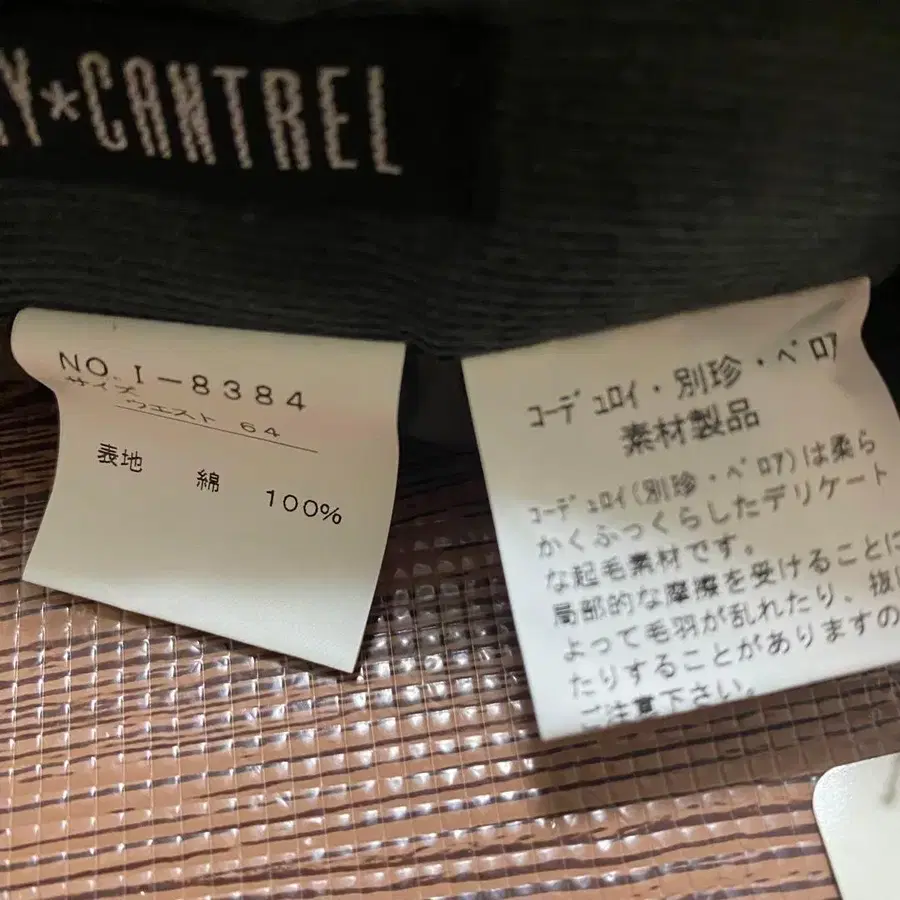 Y*CANTREL
NO.I-8384
サイズ
ウエスト 64
表地 綿 100%
コーデュロイ・別珍・ベロア
素材製品
コーデュロイ(別珍・ベロア)は柔ら
かくふっくらしたデリケート
な起毛素材です。
局部的な摩擦を受けることに
よって毛羽が乱れたり、抜け
たりすることがありますの
ご注意下さい。